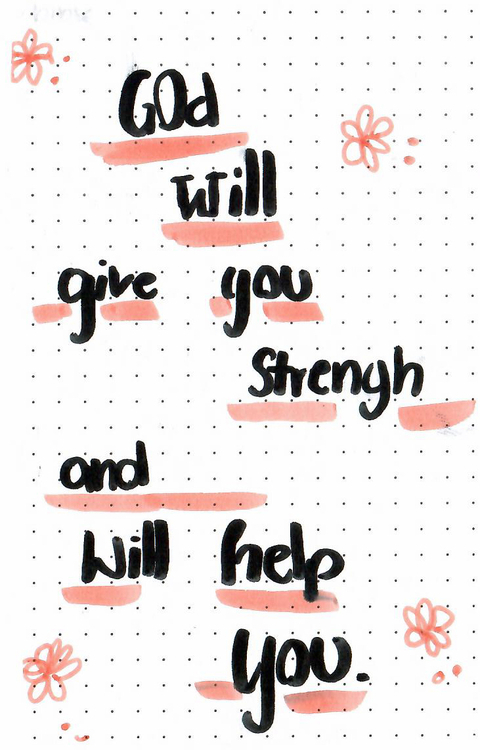 God
Will
give you
Strengh
and
Will help
you.